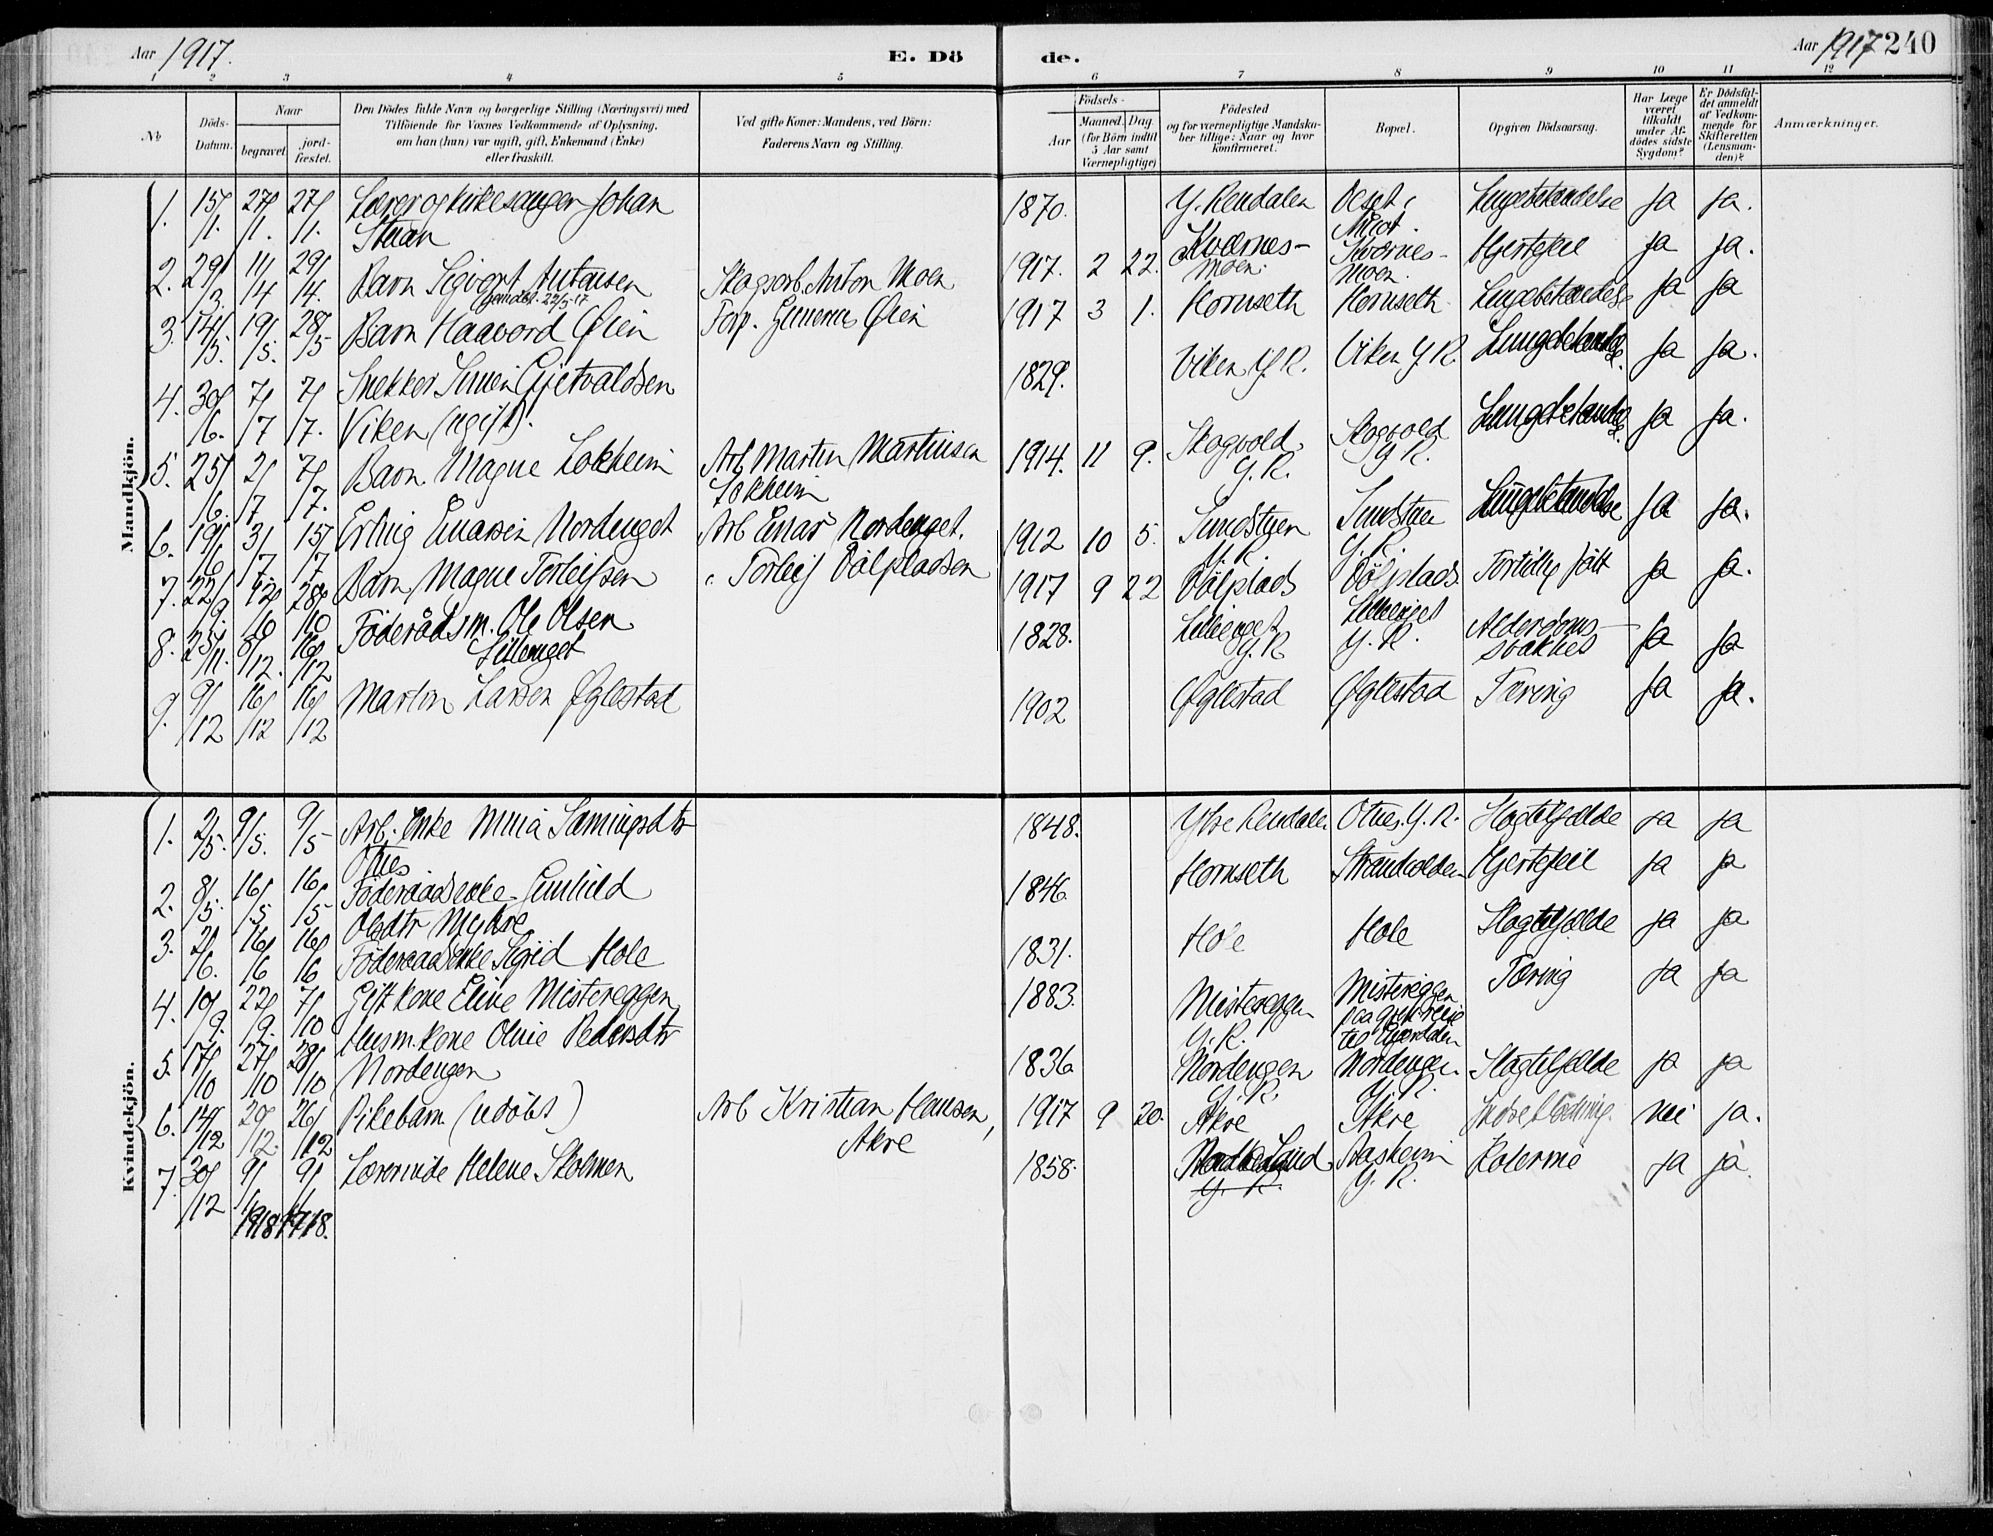 Aar 1917.
E. Dö
de.
Aar 1917 240
1 2 3 4 5 6 7 8 9 10 11 12
No
Döds-Datum.
Naar
begravet.
jord-fæstet.
Den Dödes fulde Navn og borgerlige Stilling (Næringsvei) med
Tilföiende for Voxnes Vedkommende af Oplysning,
om han (hun) var ugift, gift, Enkemand (Enke)
eller fraskilt.
Ved gifte Koner: Mandens, ved Börn:
Faderens Navn og Stilling.
Födsels-
Aar
Maaned. Dag
(for Börn indtil
5 Aar samt
Værnepligtige)
Födested
og for værnepligtige Mandska-
ber tillige: Naar og hvor
konfirmeret.
Bopæl.
Opgiven Dödsaarsag.
Har Læge
været
tilkaldt
under Af-
dödes sidste
Sygdom?
Er Dödsfal-
det anmeldt
af Vedkom-
mende for
Skifteretten
(Lensman-
den)?
Anmærkninger.
Mandkjön.
1. 15/1. 27/1. 27/1. Lærer og kirkesanger Johan 1870. Y. Rendalen Oeset i Lungebetændelse Ja Ja.
2. 29/3. 11/4 29/4. Barn Sigvart Antonsen Skogsarb. Anton Moen 1917. 2 22. Kværnes-moen. Kværnes-moen. Hjertefeil Ja Ja.
3. 14/5. 19/5. 28/5 Barn Haavord Øien Forp. Gunerius Øien 1917 3 1. Hornseth Hornseth Lungebetændelse Ja Ja
4. 30/6. 7/7 7/7. Snekker Simen Gjetvaldsen 1829. Viken Y. R. Viken Y. R. Lungebetændelse. Ja Ja.
Viken (ugift).
5. 25/6. 2/7 7/7. Barn Magne Løkheim Arb. Martin Martinsen 1914. 11 9. Skogvold Y. R. Skogvold Y. R. Lungebetændelse. Ja Ja.
Løkheim
6. 19/6 3/7 15/7 Erling Einarsen Nordenget Arb Einar Nordenget. 1912 10 5. Sundstuen Y. R. Sundstuen Y. R. Lungebetændelse Ja Ja.
7. 22/9. 12/10 28/10 Barn Magne Torleifsen " Torleif Völpladsen 1917 9 22 Völplads Völplads Fortidlig født Ja Ja.
8. 25/11. 8/12. 16/12 Föderådsm. Ole Olsen 1828. Lilleenget Y. R. Lilleenget Y. R. Alderdoms-svakhet Ja Ja
Lilleenget
9. 9/12 16/12 16/12 Martin Larsen Øglestad 1902 Øglestad Øglestad Tæring Ja Ja.
Kvindekjön.
1. 2/5. 9/5. 9/5 Arb. Enke Maria Sæmingsdtr 1848. Ytre Rendalen Otnes. Y. R. Slagtilfælde Ja Ja
Otnes
2. 8/5. 16/5 16/5 Föderaadsenke Gunhild 1846. Hornseth Strandvolden Hjertefeil Ja Ja
Olsdtr Mykre
3. 2/6. 16/6 16/6 Föderaadsenke Sigrid Hole 1831. Hole Hole Slagtilfælde Ja Ja
4. 10/9. 22/9. 7/10 Gift kone Eline Mistereggen 1883. Mistereggen Y. R. Mistereggen Tæring Ja Ja
5. 17/10 27/10 28/10 Husm. kone Oline Pedersdtr 1836 Nordengen Y. R. Nordengen Y. R. Slagtilfælde Ja Ja
Nordengen
6. 14/12 20/12. 26/12 Pikebarn (udöbt) Arb Kristian Hansen, 1917 9 20. Akre Akre Indre Blödning. Nei Ja.
Akre
7. 30/12 9/1 1918 9/1 1918. Lærerinde Helene Skolmen 1858. Aasheim Y. R. Kolerine Ja Ja.